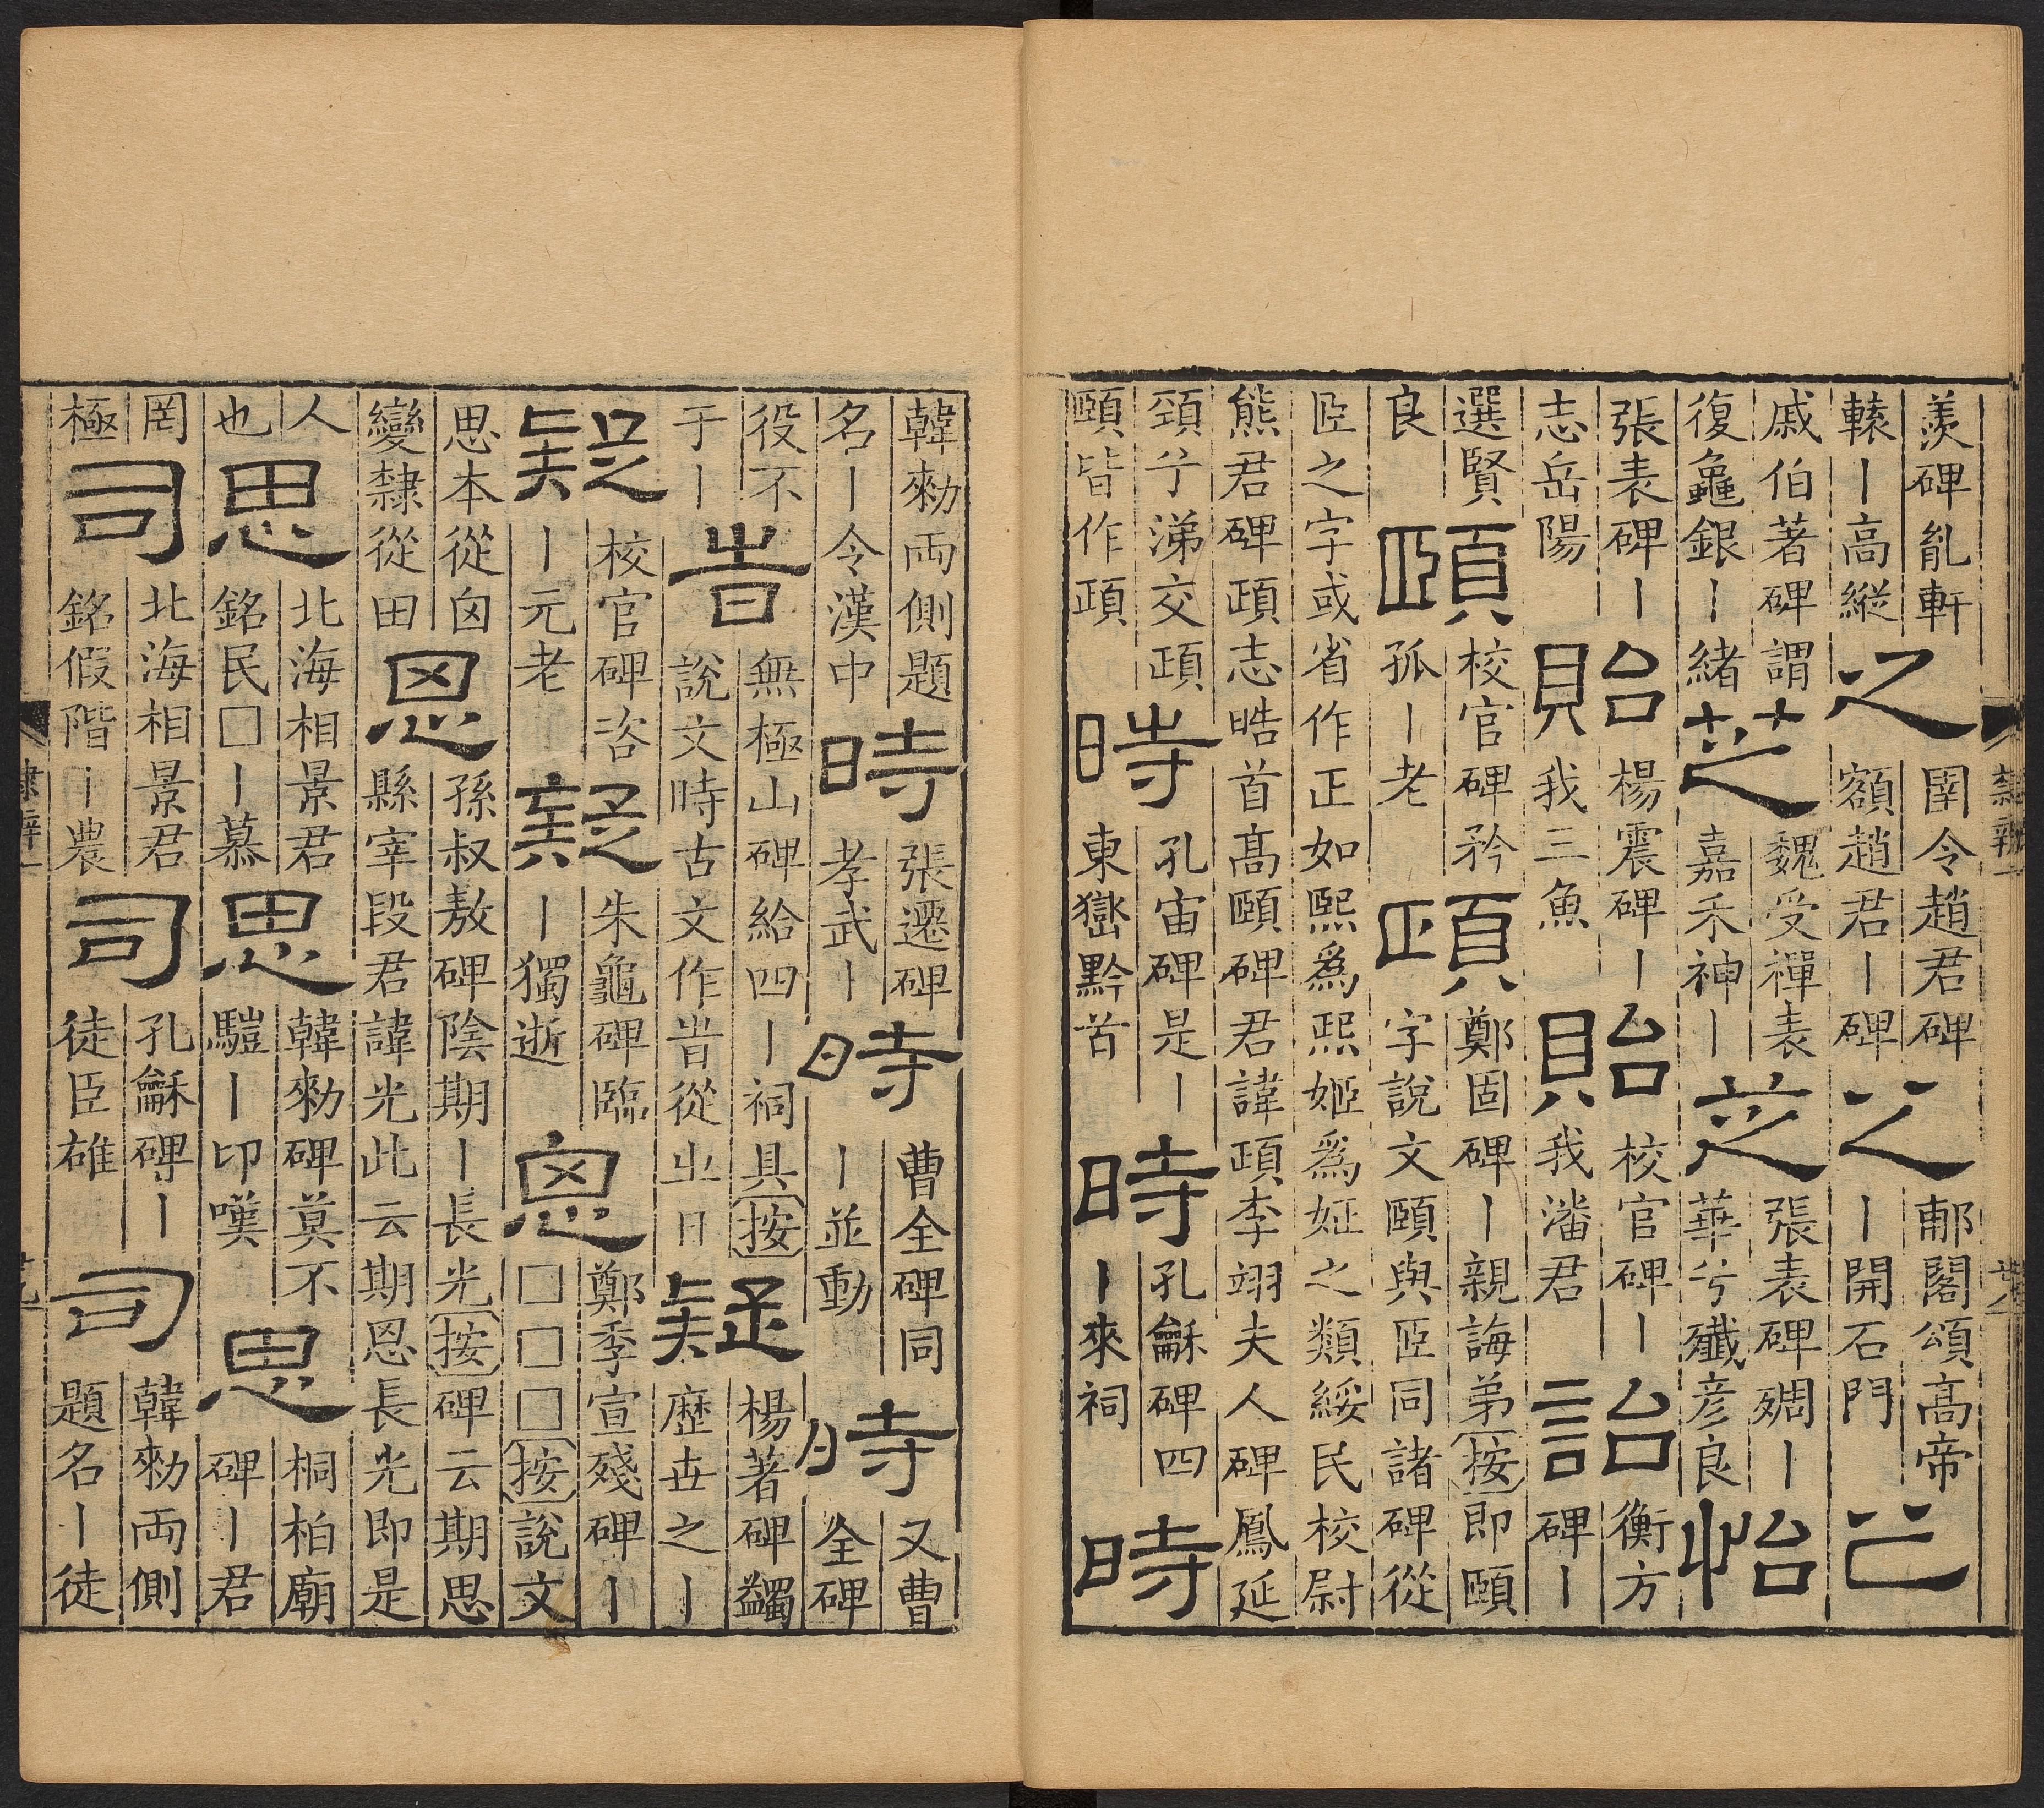 羨碑胤軒
轅丨高縱
之
圉令趙君碑
額趙君丨碑
之
郙閣頌高帝
丨開石門
之
戚伯著碑謂
復龜銀丨緒
芝
魏受禪表
嘉禾神丨
芝
張表碑殦丨
華兮殲彥良
怡
張表碑丨
志岳陽
貽
楊震碑丨
我三魚
貽
校官碑丨
我潘君
詒
衡方
碑丨
選賢
良
頤
校官碑矜
孤丨老
頤
鄭固碑丨親誨弟按即頤
字說文頤與𦣝同諸碑從
𦣝之字或省作正如熙爲㷩姬爲姃之類綏民校尉
熊君碑頙志皓首高頤碑君諱頙李翊夫人碑鳳延
頸兮涕交頙
頤皆作頙
時
孔宙碑是丨
東嶽黔首
時
孔龢碑四
丨來祠
時
隸辨一
廿八
韓勑兩側題
名丨令漢中
時
張遷碑
孝武丨
時
曹全碑同
丨並動
時
又曹
全碑
役不
于丨
旹
無極山碑給四丨祠具按
說文時古文作旹從㞢日
疑
楊著碑蠲
歷世之丨
疑
校官碑咨
丨元老
疑
朱龜碑臨
丨獨逝
恖
鄭季宣殘碑丨
□□□按說文
思本從囟
變隸從田
恖
孫叔敖碑陰期丨長光按碑云期思
縣宰段君諱光此云期恩長光即是
人
也
思
北海相景君
銘民□丨慕
思
韓勑碑莫不
驥丨卬嘆
思
桐柏廟
碑丨君
罔
極
司
北海相景君
銘假階丨農
司
孔龢碑丨
徒臣雄
司
韓勑兩側
題名丨徒
隸辨一
廿九